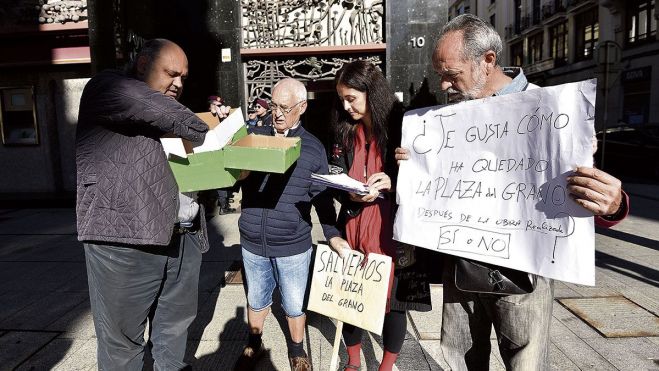 10
¿TE GUSTA CÓMO
HA QUEDADO
LA PLAZA del GRANO
DESPUÉS DE LA OBRA Realizada
SÍ o NO
?
SALVEMOS
LA PLAZA
DEL GRANO